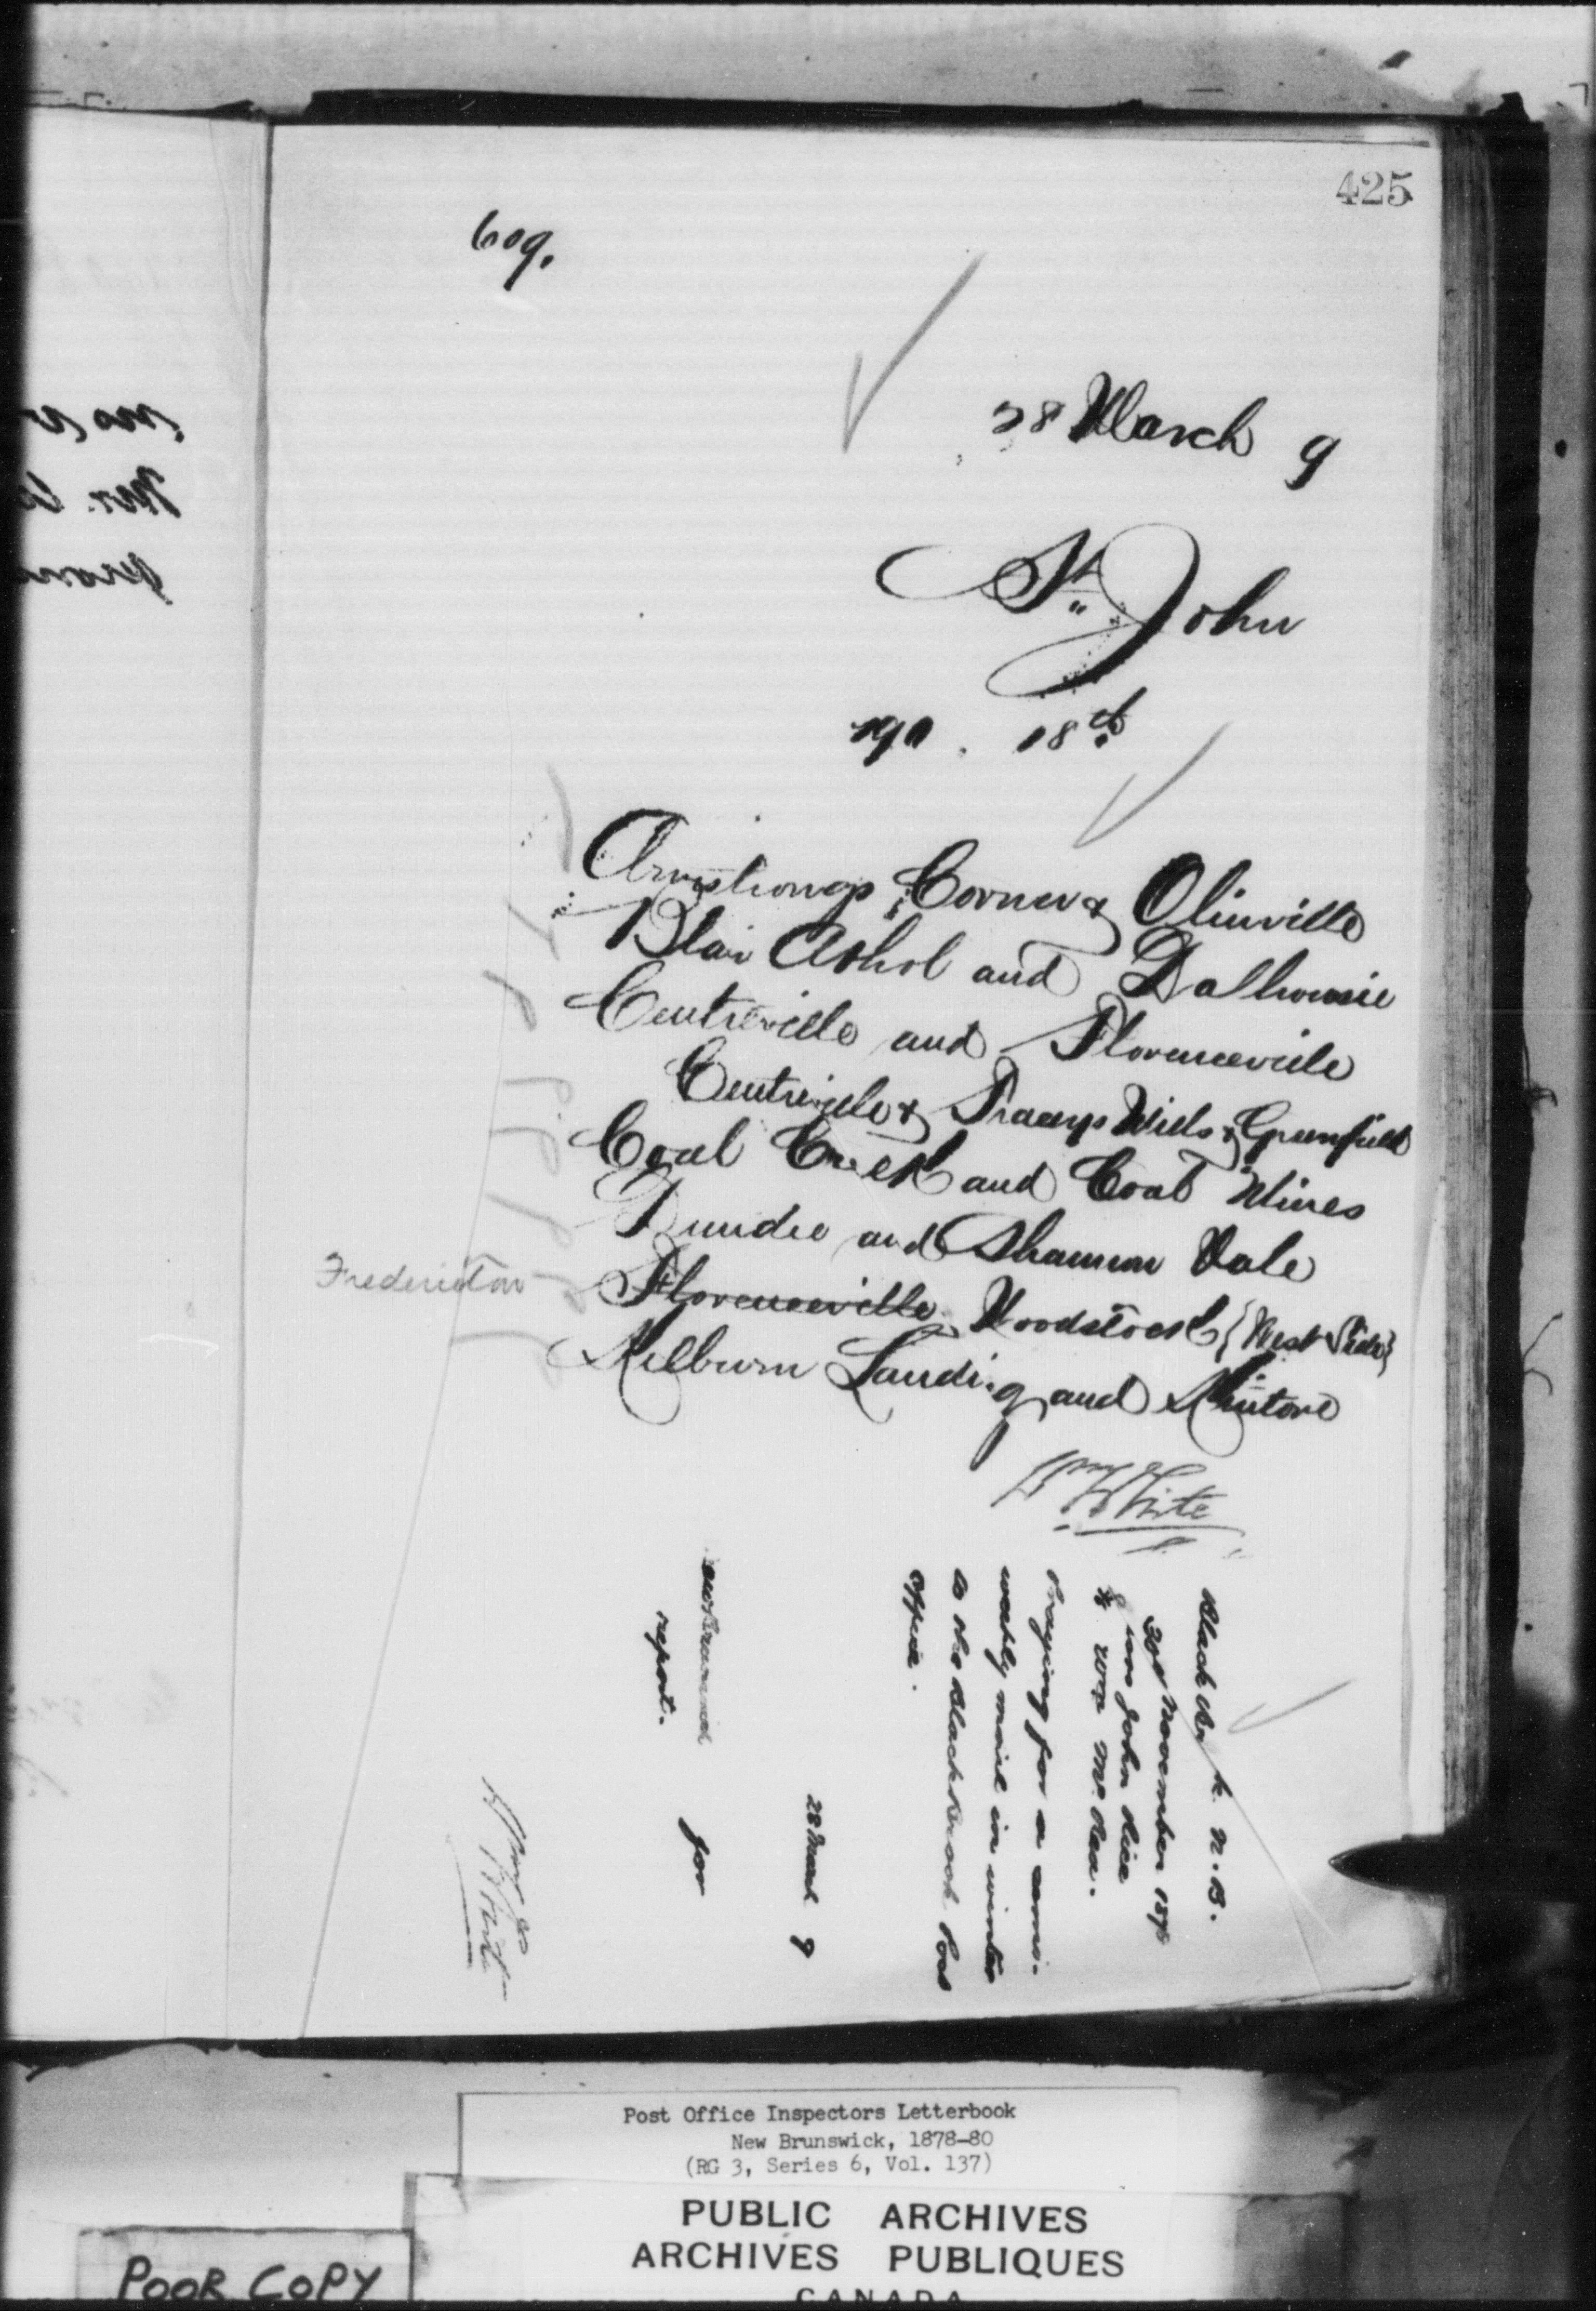 425
609.
28 March 9
St. John
190. 18th
Armstrongs Corner & Olinville
Blair Athol and Dalhousie
Centreville and Florenceville
Centreville & Traceys Mills & Greenfield
Coal Creek and Coal Mines
Dundee and Shannon Vale
Fredericton Florenceville Woodstock {West Side}
Kilburn Landing and Kintore
White
Black Brk. N.B.
30th November 187
John Rice
& McRea.
Praying for a semi-
weekly mail in winter
to the Black Brook Post
Office.
28 March 9
for
report.
White
Post Office Inspectors Letterbook
New Brunswick, 1878-80
(RG 3, Series 6, Vol. 137)
PUBLIC ARCHIVES
ARCHIVES PUBLIQUES
CANADA
POOR COPY